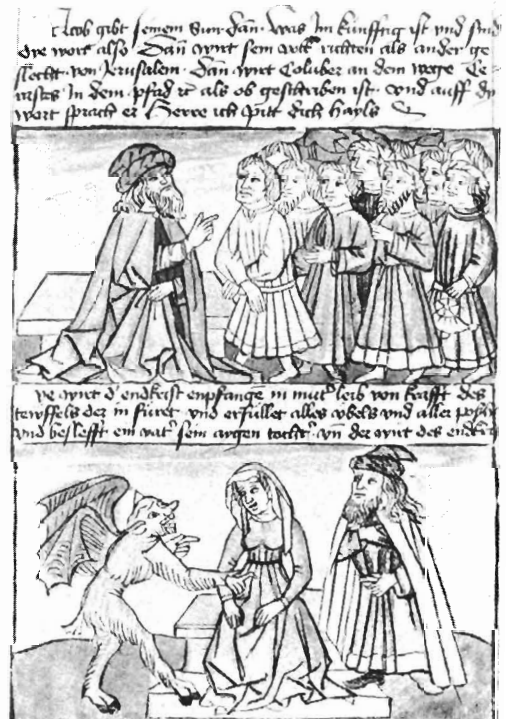 Jacob gibt seinem Sun Dan was Im künfftig ist vnd sind
dye wort also Dan wirt sein volk richten als ander ge
slecht von Jerusalem Dan wirt Coluber an dem wege Ce
rastes In dem pfad als ob geschriben ist vnd auff dy
wort sprach er Herre ich pitt dich hayls
wirt d' endkrist enpfange in mut' leib von krafft des
tewffels der in füret vnd erfüllet alles vbels vnd aller poshait
vnd beslefft ein vat' sein argen tocht' vn der wirt des endkrist